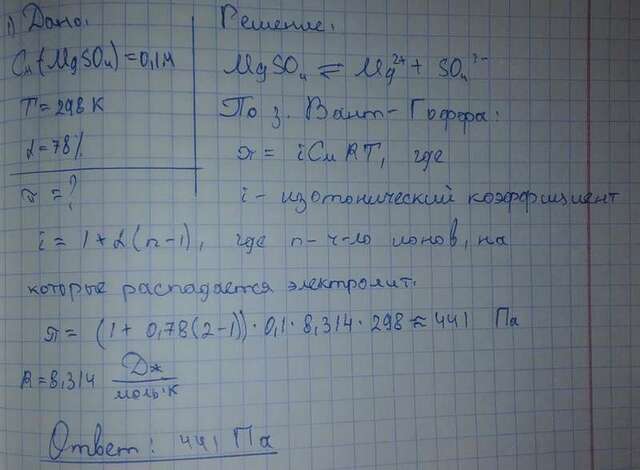 1) Дано:
Cм(MgSO4) = 0,1 М
T = 298 К
α = 78%
π = ?
Решение:
MgSO4 ⇌ Mg2+ + SO4 2-
По з. Вант-Гоффа:
π = iCмRT, где
i - изотонический коэффициент
i = 1 + α(n-1), где n - ч-ло ионов, на
которые распадается электролит.
π = (1 + 0,78(2-1)) · 0,1 · 8,314 · 298 ≈ 441 Па
R = 8,314 Дж/моль·К
Ответ: 441 Па